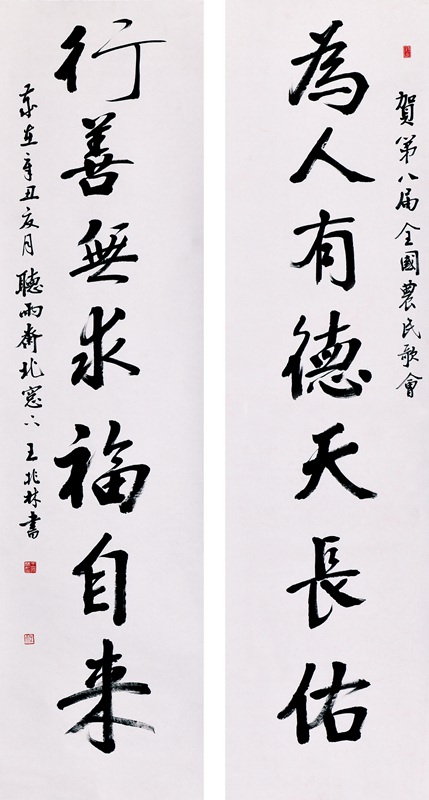 賀第八届全國農民歌會
為人有德天長佑
行善無求福自来
歲在辛丑夏月聽雨齋北窓下王兆林書